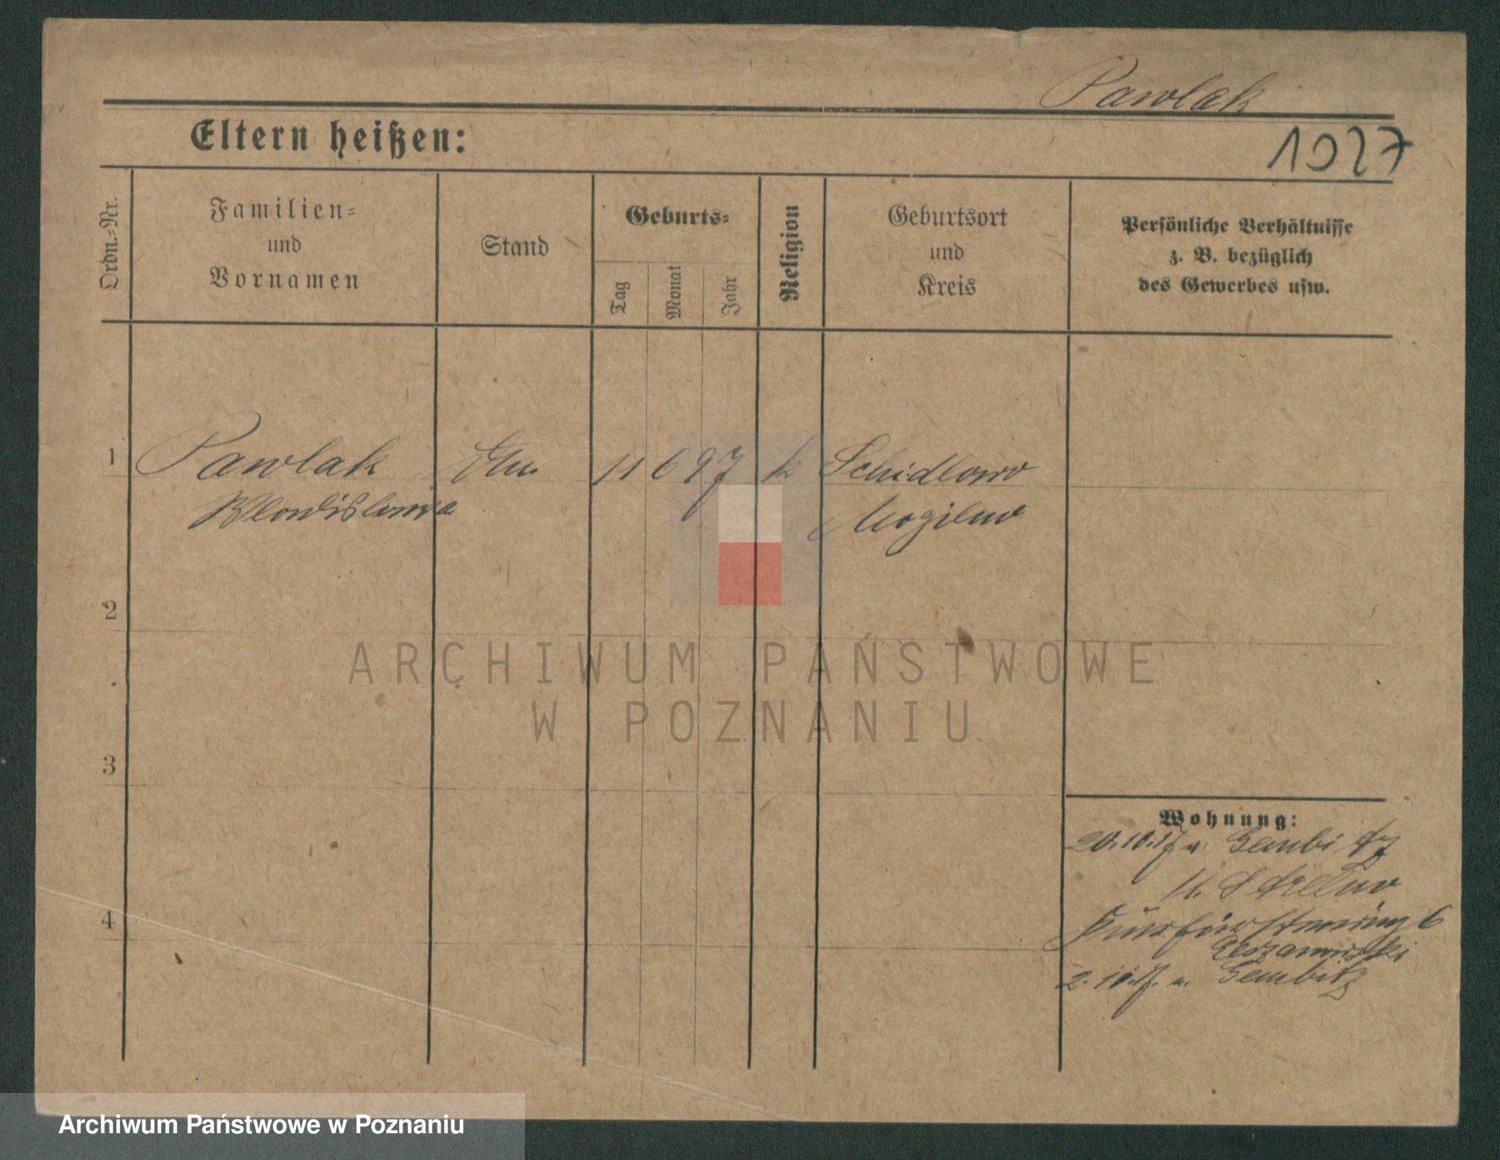 Pawlak
1027
Eltern heißen:
Ordn.=Nr.
Familien=
und
Vornamen
Stand
Geburts=
Tag
Monat
Jahr
Religion
Geburtsort
und
Kreis
Persönliche Verhältnisse
z. B. bezüglich
des Gewerbes usw.
1 Pawlak 11 6 97 k Schidlowo
Wladislawa Mogilno
2
3
4
ARCHIWUM PAŃSTWOWE
W POZNANIU
Wohnung:
20.10.17 n. Gembitz
Strelno
6
2.10.17. n. Gembitz
Archiwum Państwowe w Poznaniu